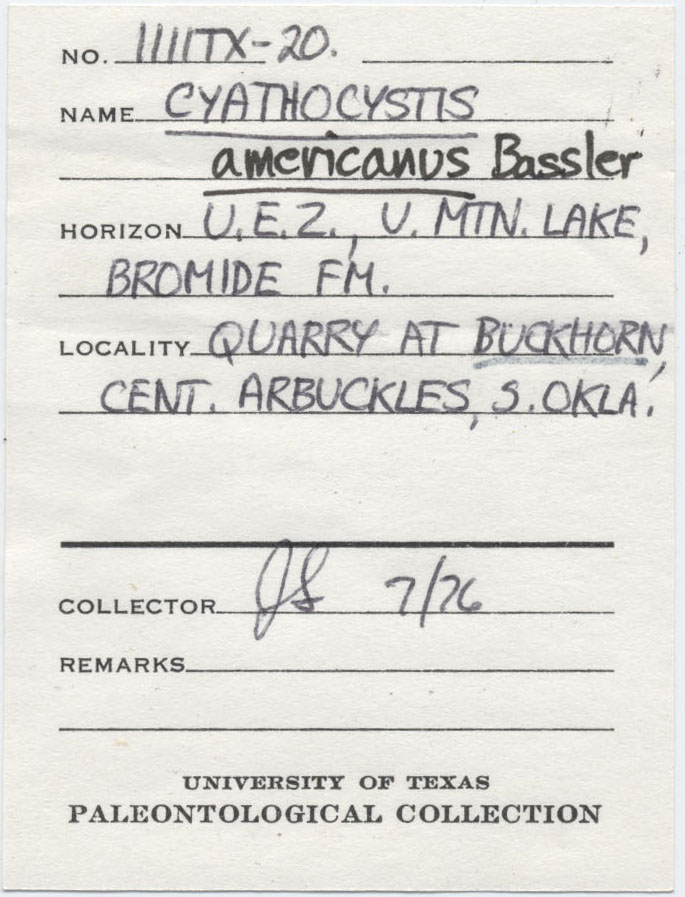 NO. 1111TX-20.
NAME CYATHOCYSTIS
americanus Bassler
HORIZON U.E.Z., U. MTN. LAKE,
BROMIDE FM.
LOCALITY QUARRY AT BUCKHORN,
CENT. ARBUCKLES, S. OKLA.
COLLECTOR JS 7/76
REMARKS
UNIVERSITY OF TEXAS
PALEONTOLOGICAL COLLECTION